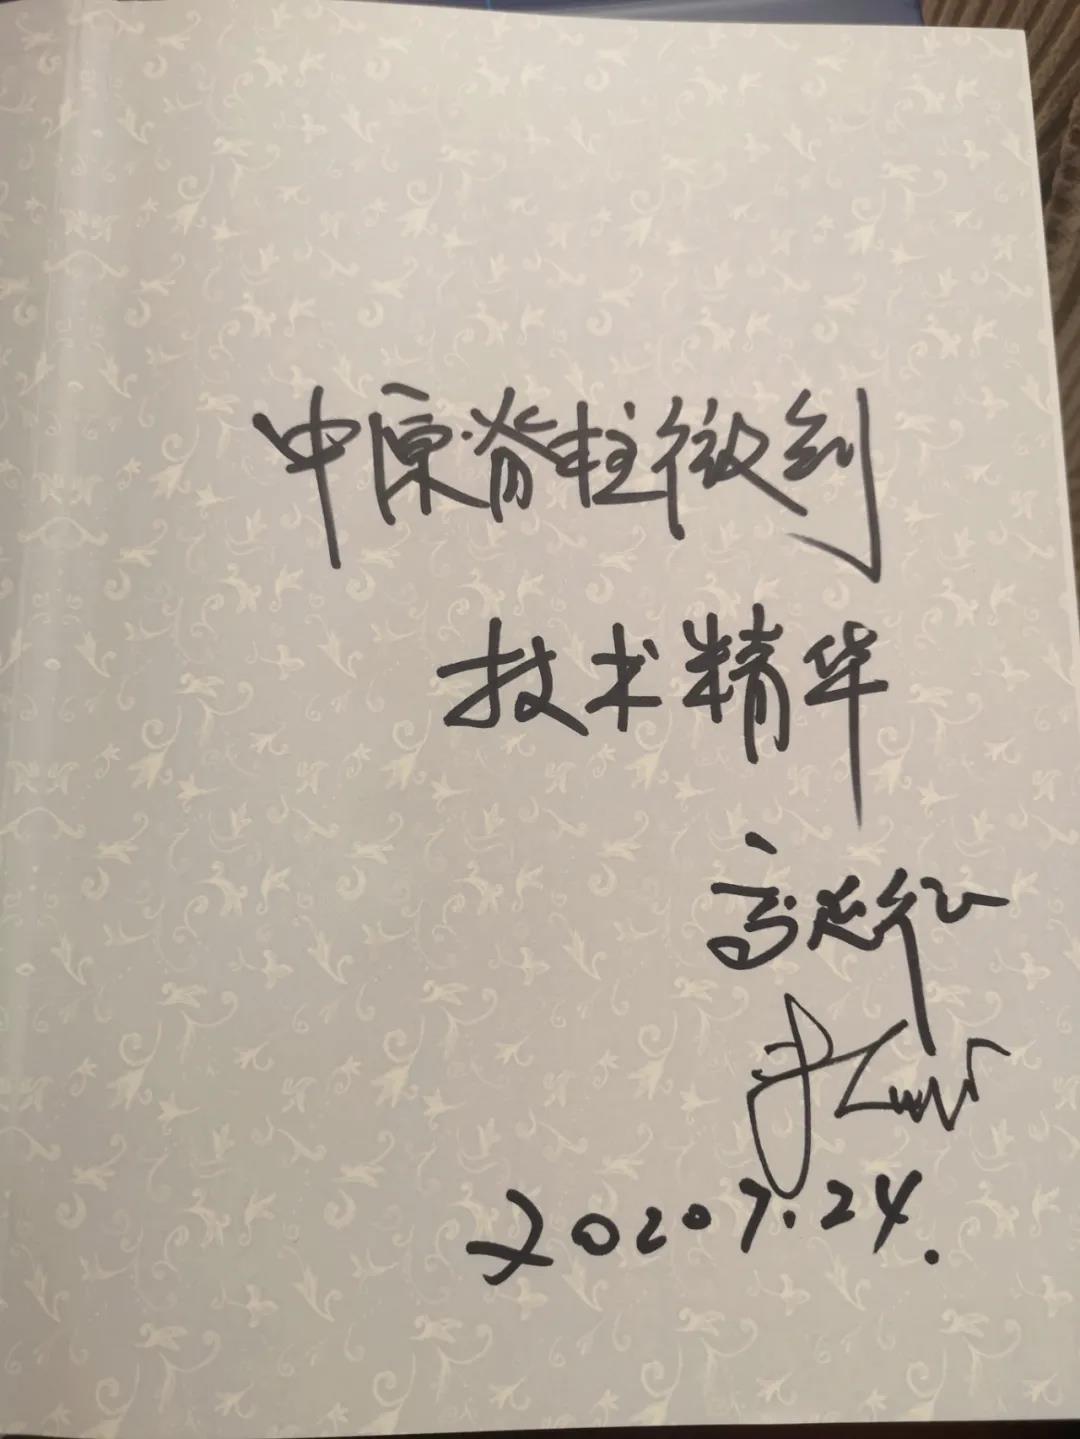 中原脊柱微创
技术精华
高延征
2020 7.24.